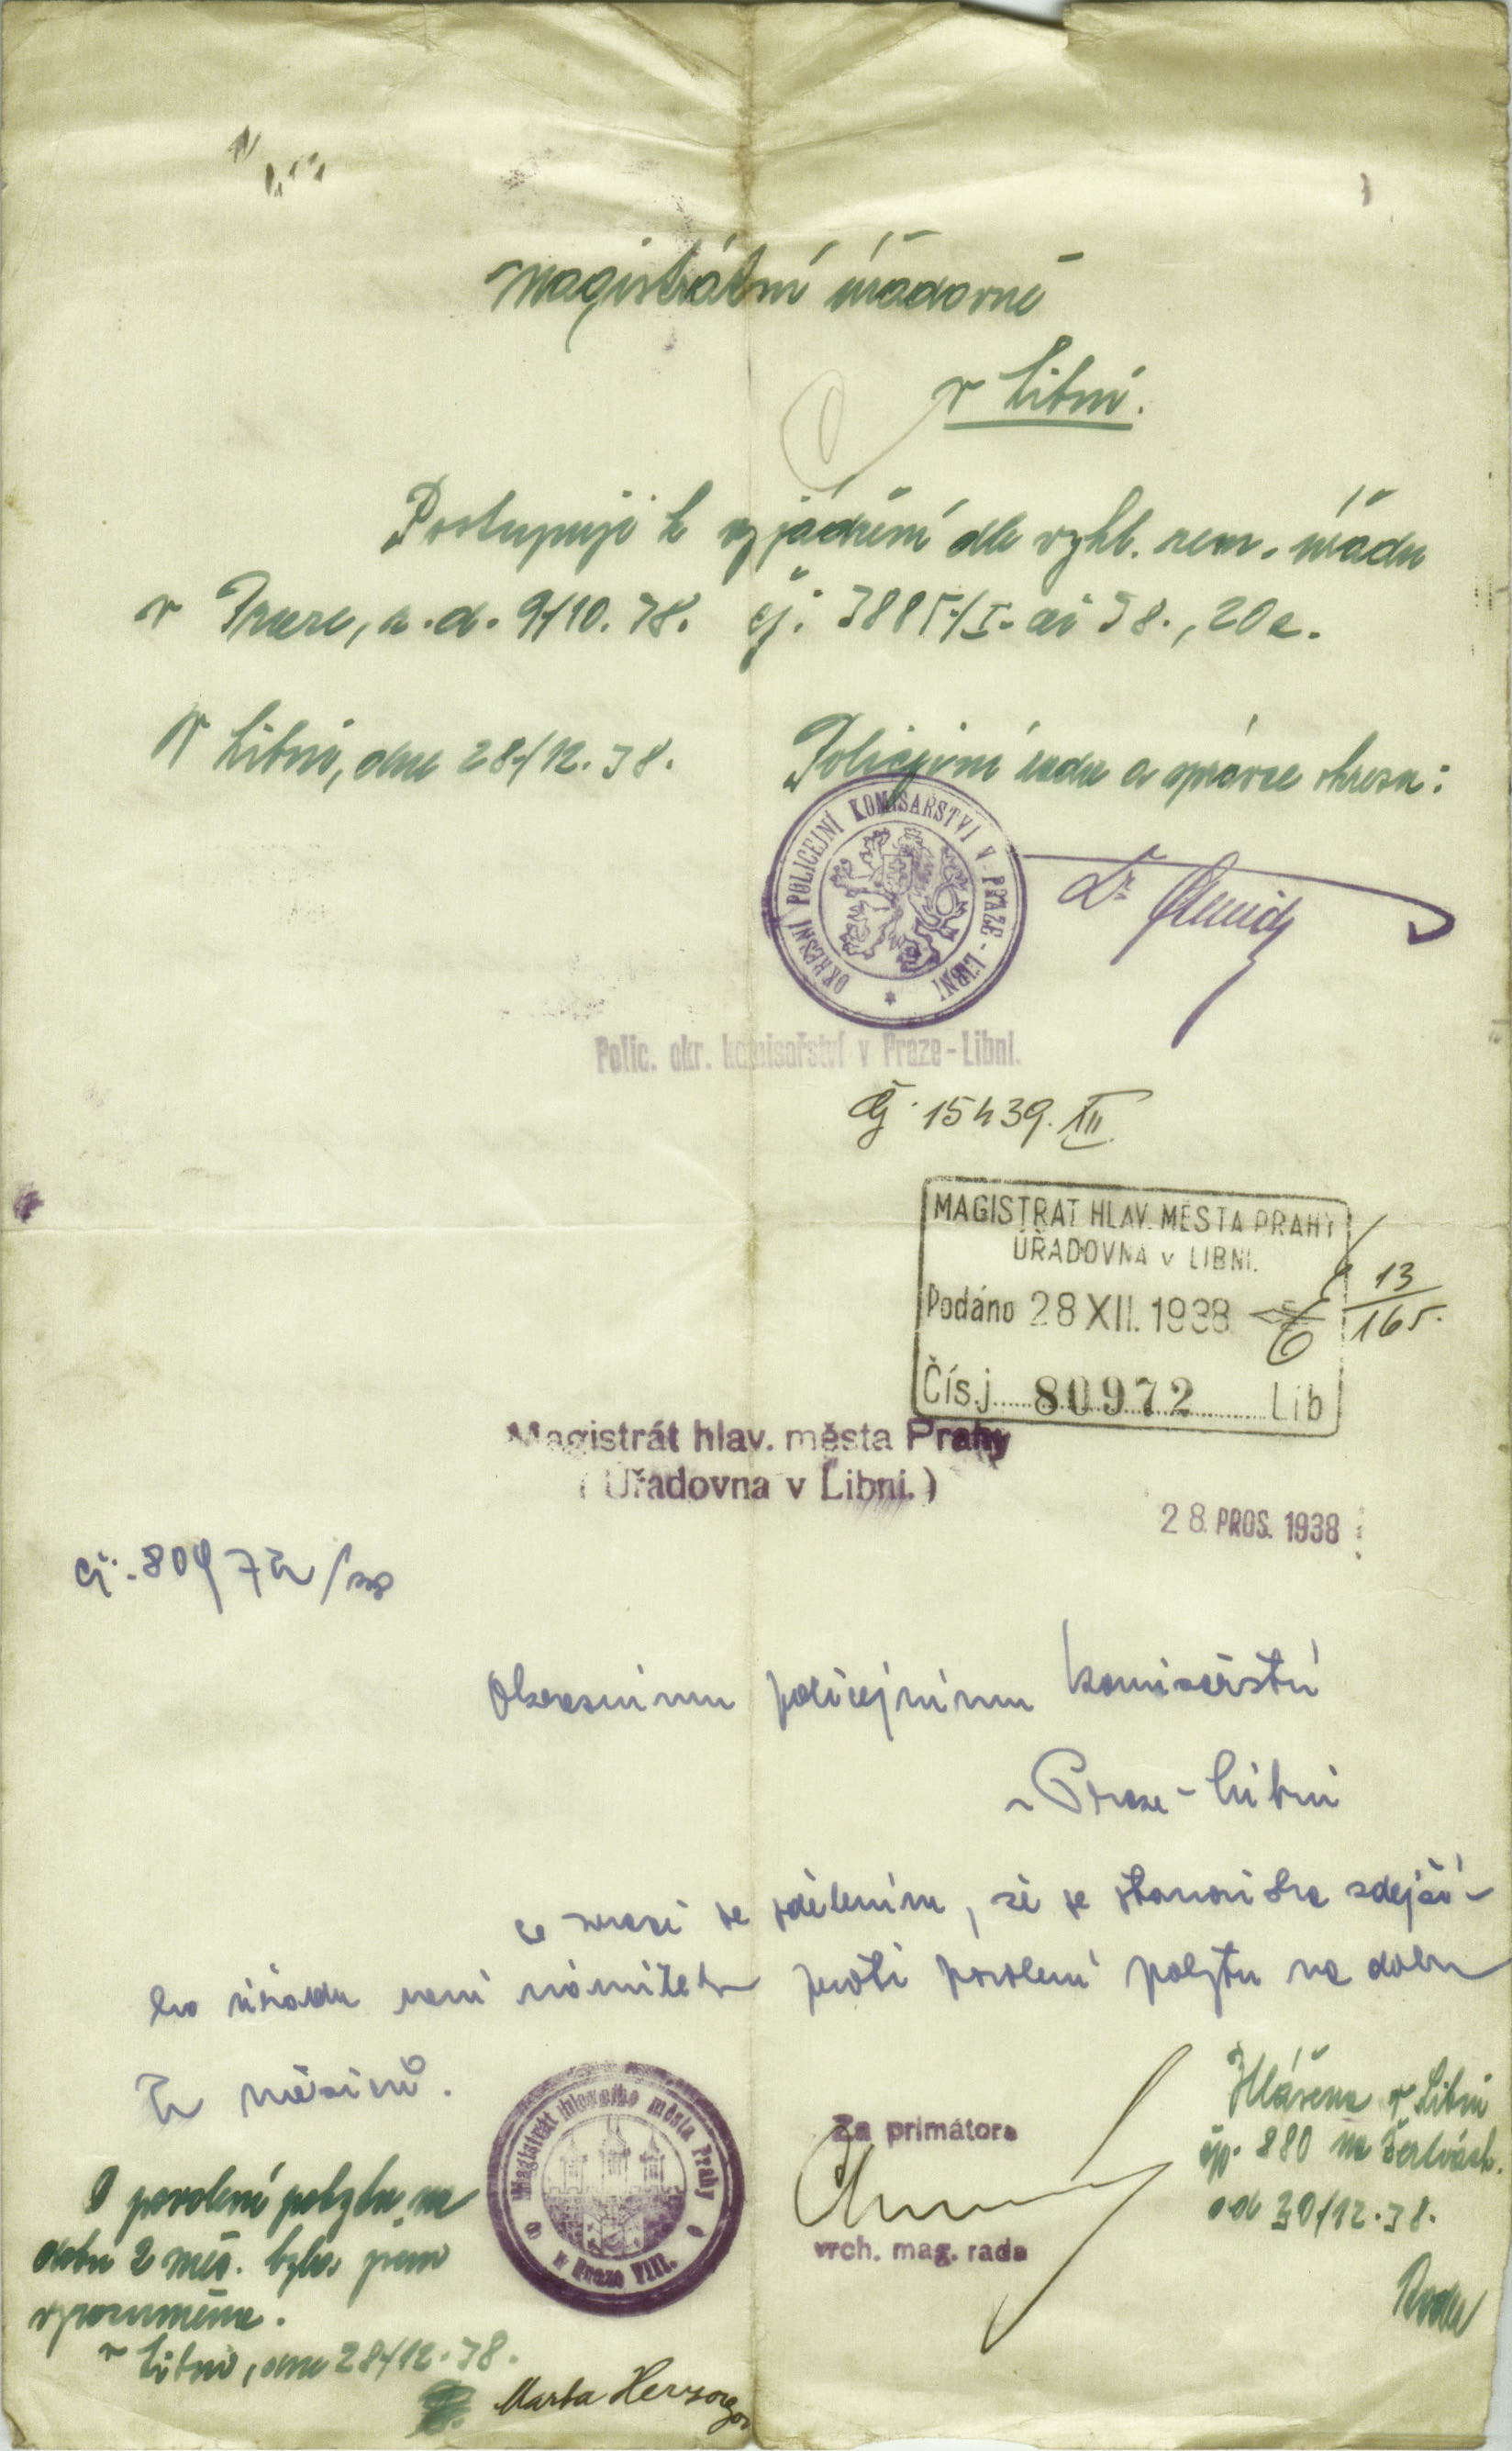 Magistrátní úřadovně
v Libni.
Postupuji k vyjádření dle vyhl. zem. úřadu
v Praze, z. d. 9/10. 38. čj. /I- ai 38., 20e.
V Libni, dne 28/12. 38.
Policejní rada a správce okresu:
OKRESNÍ POLICEJNÍ KOMISAŘSTVÍ V PRAZE - LIBNI
Dr
Polic. okr. komisařství v Praze-Libni.
Čj. 15439. XII.
MAGISTRÁT HLAV. MĚSTA PRAHY
ÚŘADOVNA v LIBNI.
Podáno 28 XII. 1938
13
165.
Čís.j. 80972 Lib
Magistrát hlav. města Prahy
(Úřadovna v Libni.)
28. PROS. 1938
čj. 80972/
Okresnímu policejnímu komisařství
v Praze-Libni
se vrací se sdělením, že se stanoviska zdejší-
ho úřadu není námitek proti povolení pobytu na dobu
2 měsíců.
Magistrát hlavního města Prahy
v Praze VIII.
Za primátora
vrch. mag. rada
Hlášena v Libni
čp. 880 na
od 30/12.38.
O povolení pobytu na
dobu 2 měs. byla jsem
vyrozuměna.
v Libni, dne 28/12.38.
Marta Herzogov